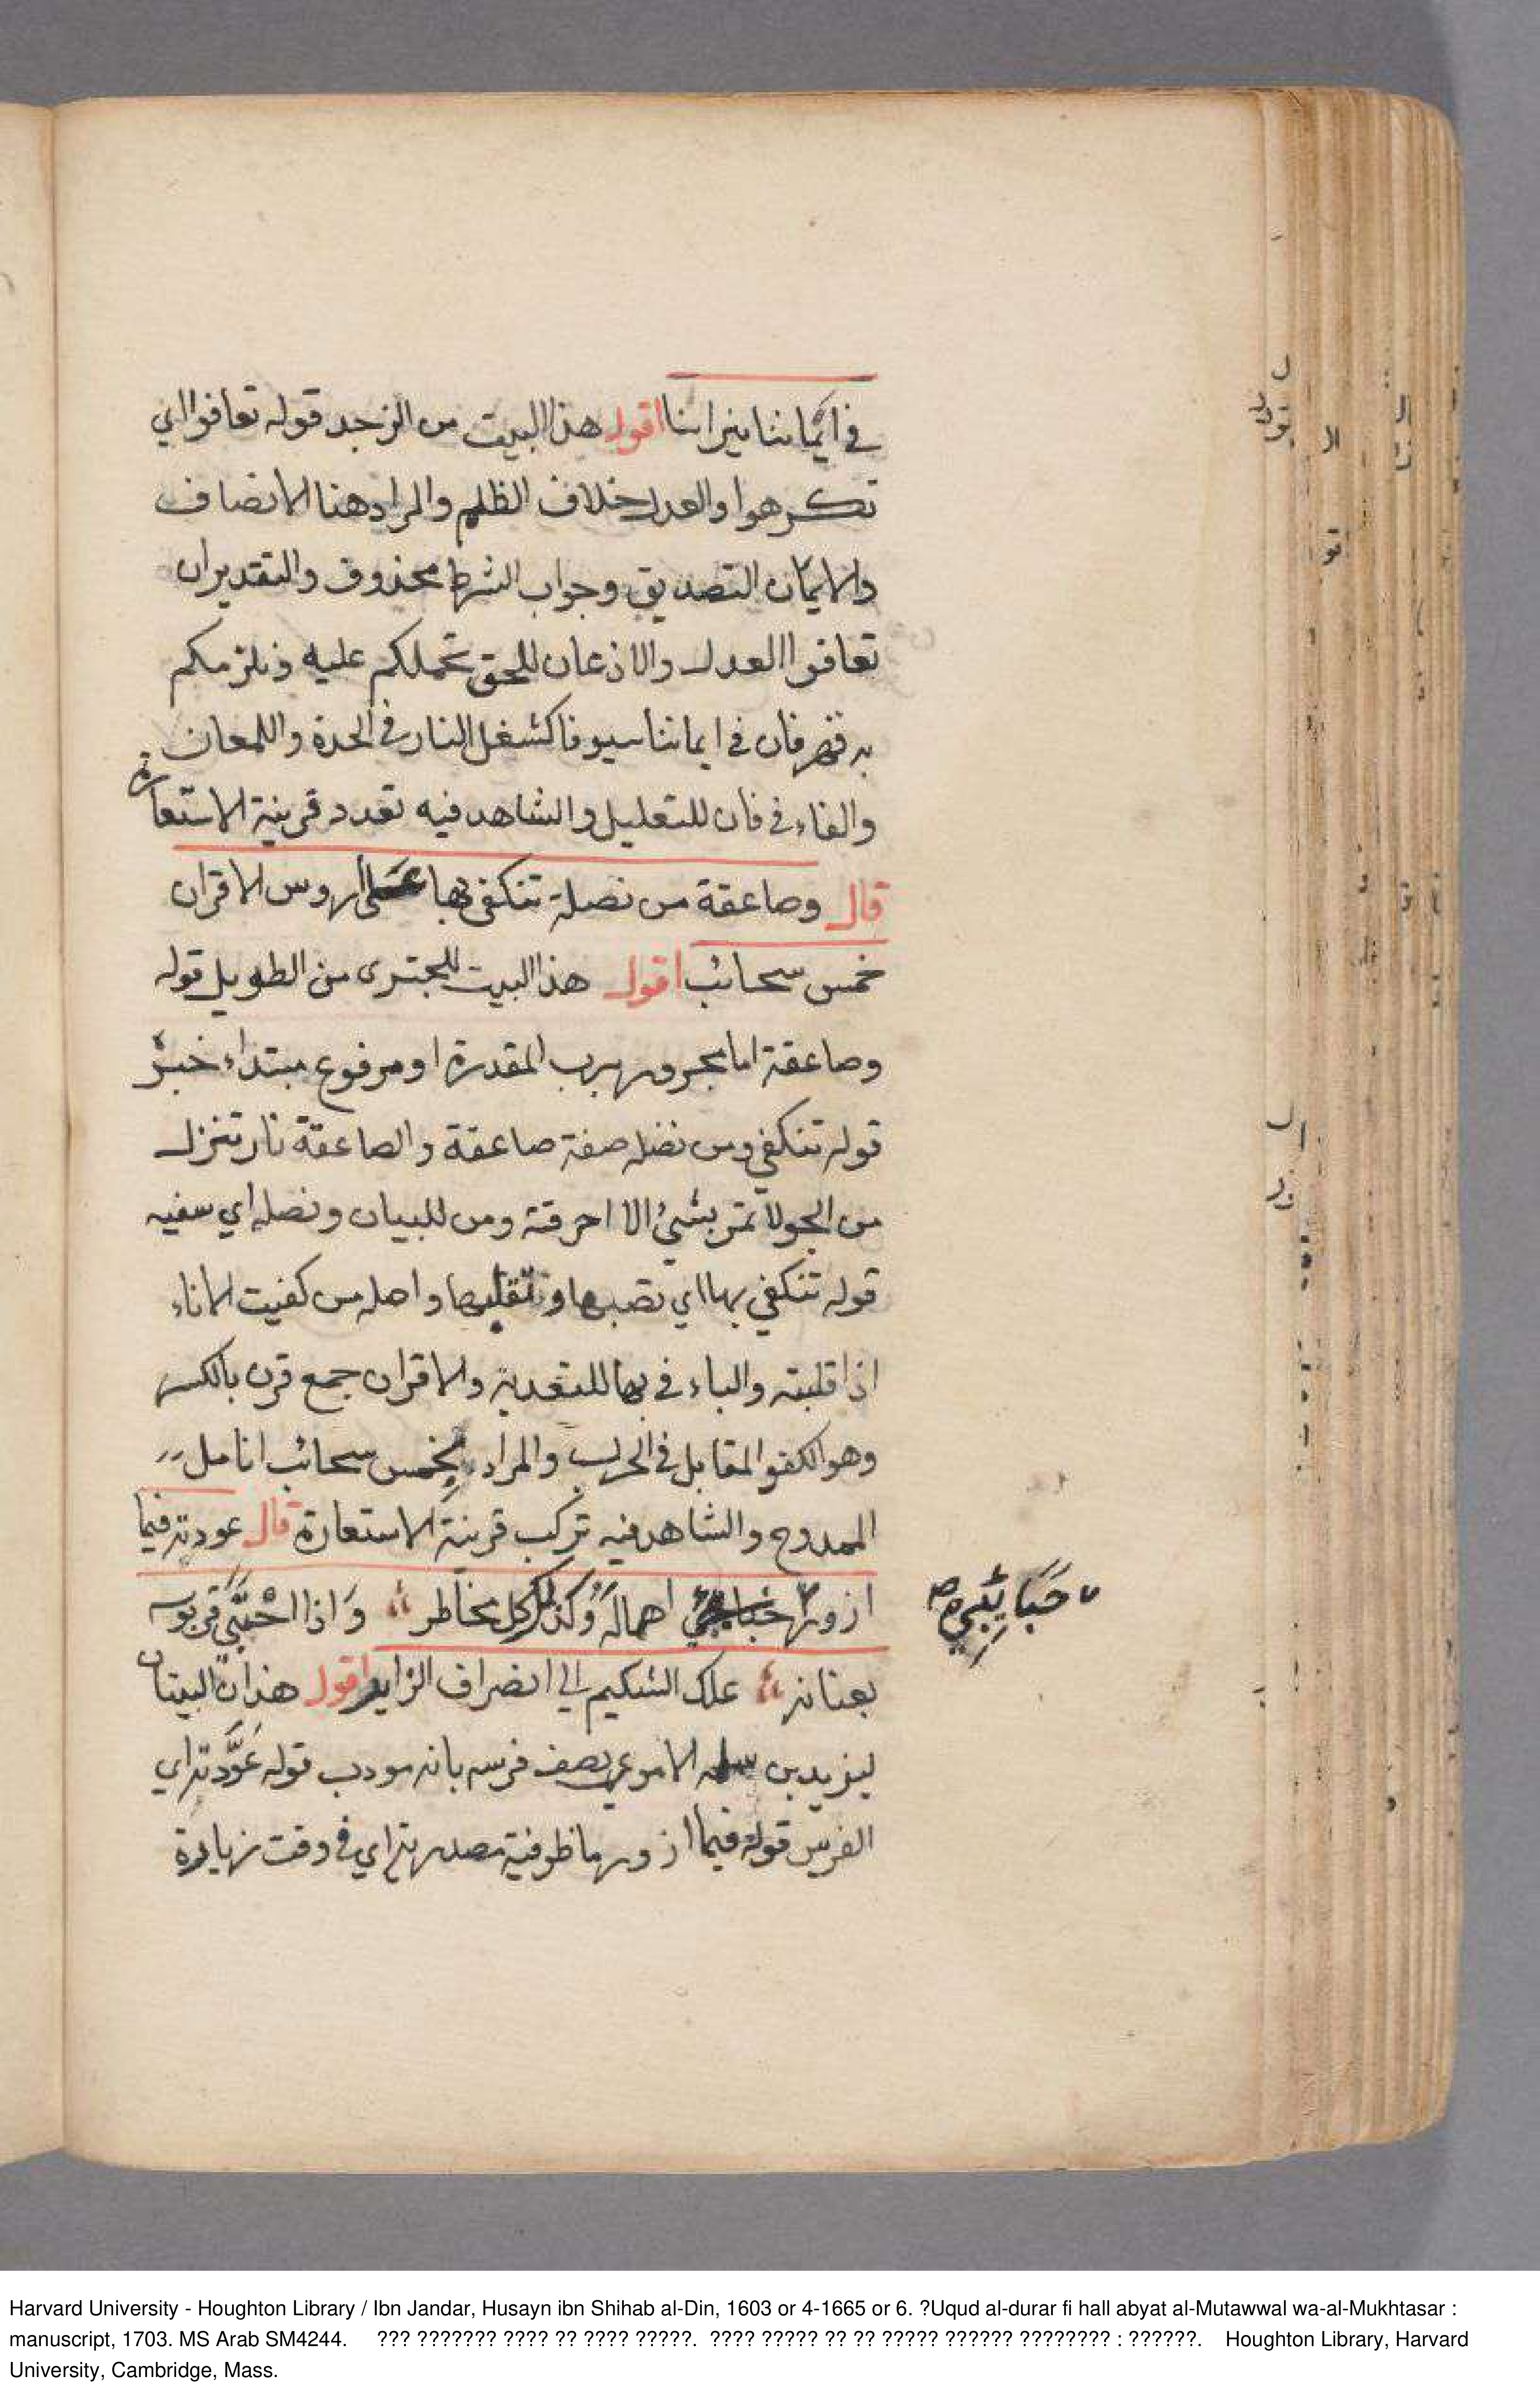 في ايماننا نيرانا اقول هذا البيت من الرجز قوله تعافوا اي
تكرهوا والعدل خلاف الظلم والمراد هنا الانصاف
والايمان التصديق وجواب الشرط محذوف والتقدير ان
تعافوا العدل والاذعان للحق نحملكم عليه ونلزمكم
به قهر فان في ايماننا سيوفا كشعل النار في الحدة واللمعان
والفاء في فان للتعليل والشاهد فيه تعدد قرينة الاستعارة
قال وصاعقة من نصله تنكفي بها على ارؤس الاقران
خمس سحائب اقول هذا البيت للبحتري من الطويل قوله
وصاعقة اما مجرور برب المقدرة او مرفوع مبتداء خبره
قوله تنكفي ومن نصله صفة صاعقة والصاعقة نار تنزل
من الجو لا تمر بشئ الا احرقته ومن للبيان ونصله اي سفيه
قوله تنكفي بها اي تصبها وتقلبها واصله من كفيت الاناء
اذا قلبته والباء في بها للتعدية والاقران جمع قرن بالكسر
وهو الكفو المقابل في الحرب والمراد بخمس سحائب انامل
الممدوح والشاهد فيه تركب قرينة الاستعارة قال عودته فيما
ازور اهماله وكذلك كل مخاطر وَاذا احْتَبَى قربوسه
بعنانه علك الشكيم الي انصراف الزاير اقول هذان البيتان
ليزيد بن سلمه الاموي يصف فرسه بانه مودب قوله عَوَّدته اي
الفرس قوله فيما ازور ما ظرفية مصدرية اي في وقت زيارة
حَبَايِبِي
Harvard University - Houghton Library / Ibn Jandar, Husayn ibn Shihab al-Din, 1603 or 4-1665 or 6. ?Uqud al-durar fi hall abyat al-Mutawwal wa-al-Mukhtasar :
manuscript, 1703. MS Arab SM4244. ??? ??????? ???? ?? ???? ?????. ???? ????? ?? ?? ????? ?????? ???????? : ??????. Houghton Library, Harvard
University, Cambridge, Mass.